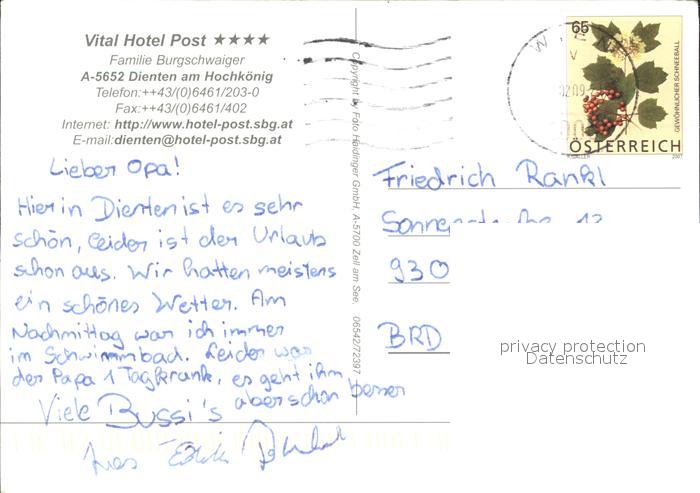 Vital Hotel Post ★★★★
Familie Burgschwaiger
A-5652 Dienten am Hochkönig
Telefon:++43/(0)6461/203-0
Fax:++43/(0)6461/402
Internet: http://www.hotel-post.sbg.at
E-mail:dienten@hotel-post.sbg.at
Lieber Opa!
Hier in Dienten ist es sehr
schön, leider ist der Urlaub
schon aus. Wir hatten meistens
ein schönes Wetter. Am
Nachmittag war ich immer
im Schwimmbad. Leider war
der Papa 1 Tag krank, es geht ihm
aber schon besser
Viele Bussi's
Copyright by Foto Haidinger GmbH, A-5700 Zell am See, 06542/72397
W I E N
65
GEWÖHNLICHER SCHNEEBALL
ÖSTERREICH
2007
Friedrich Rankl
12
930
BRD
privacy protection
Datenschutz